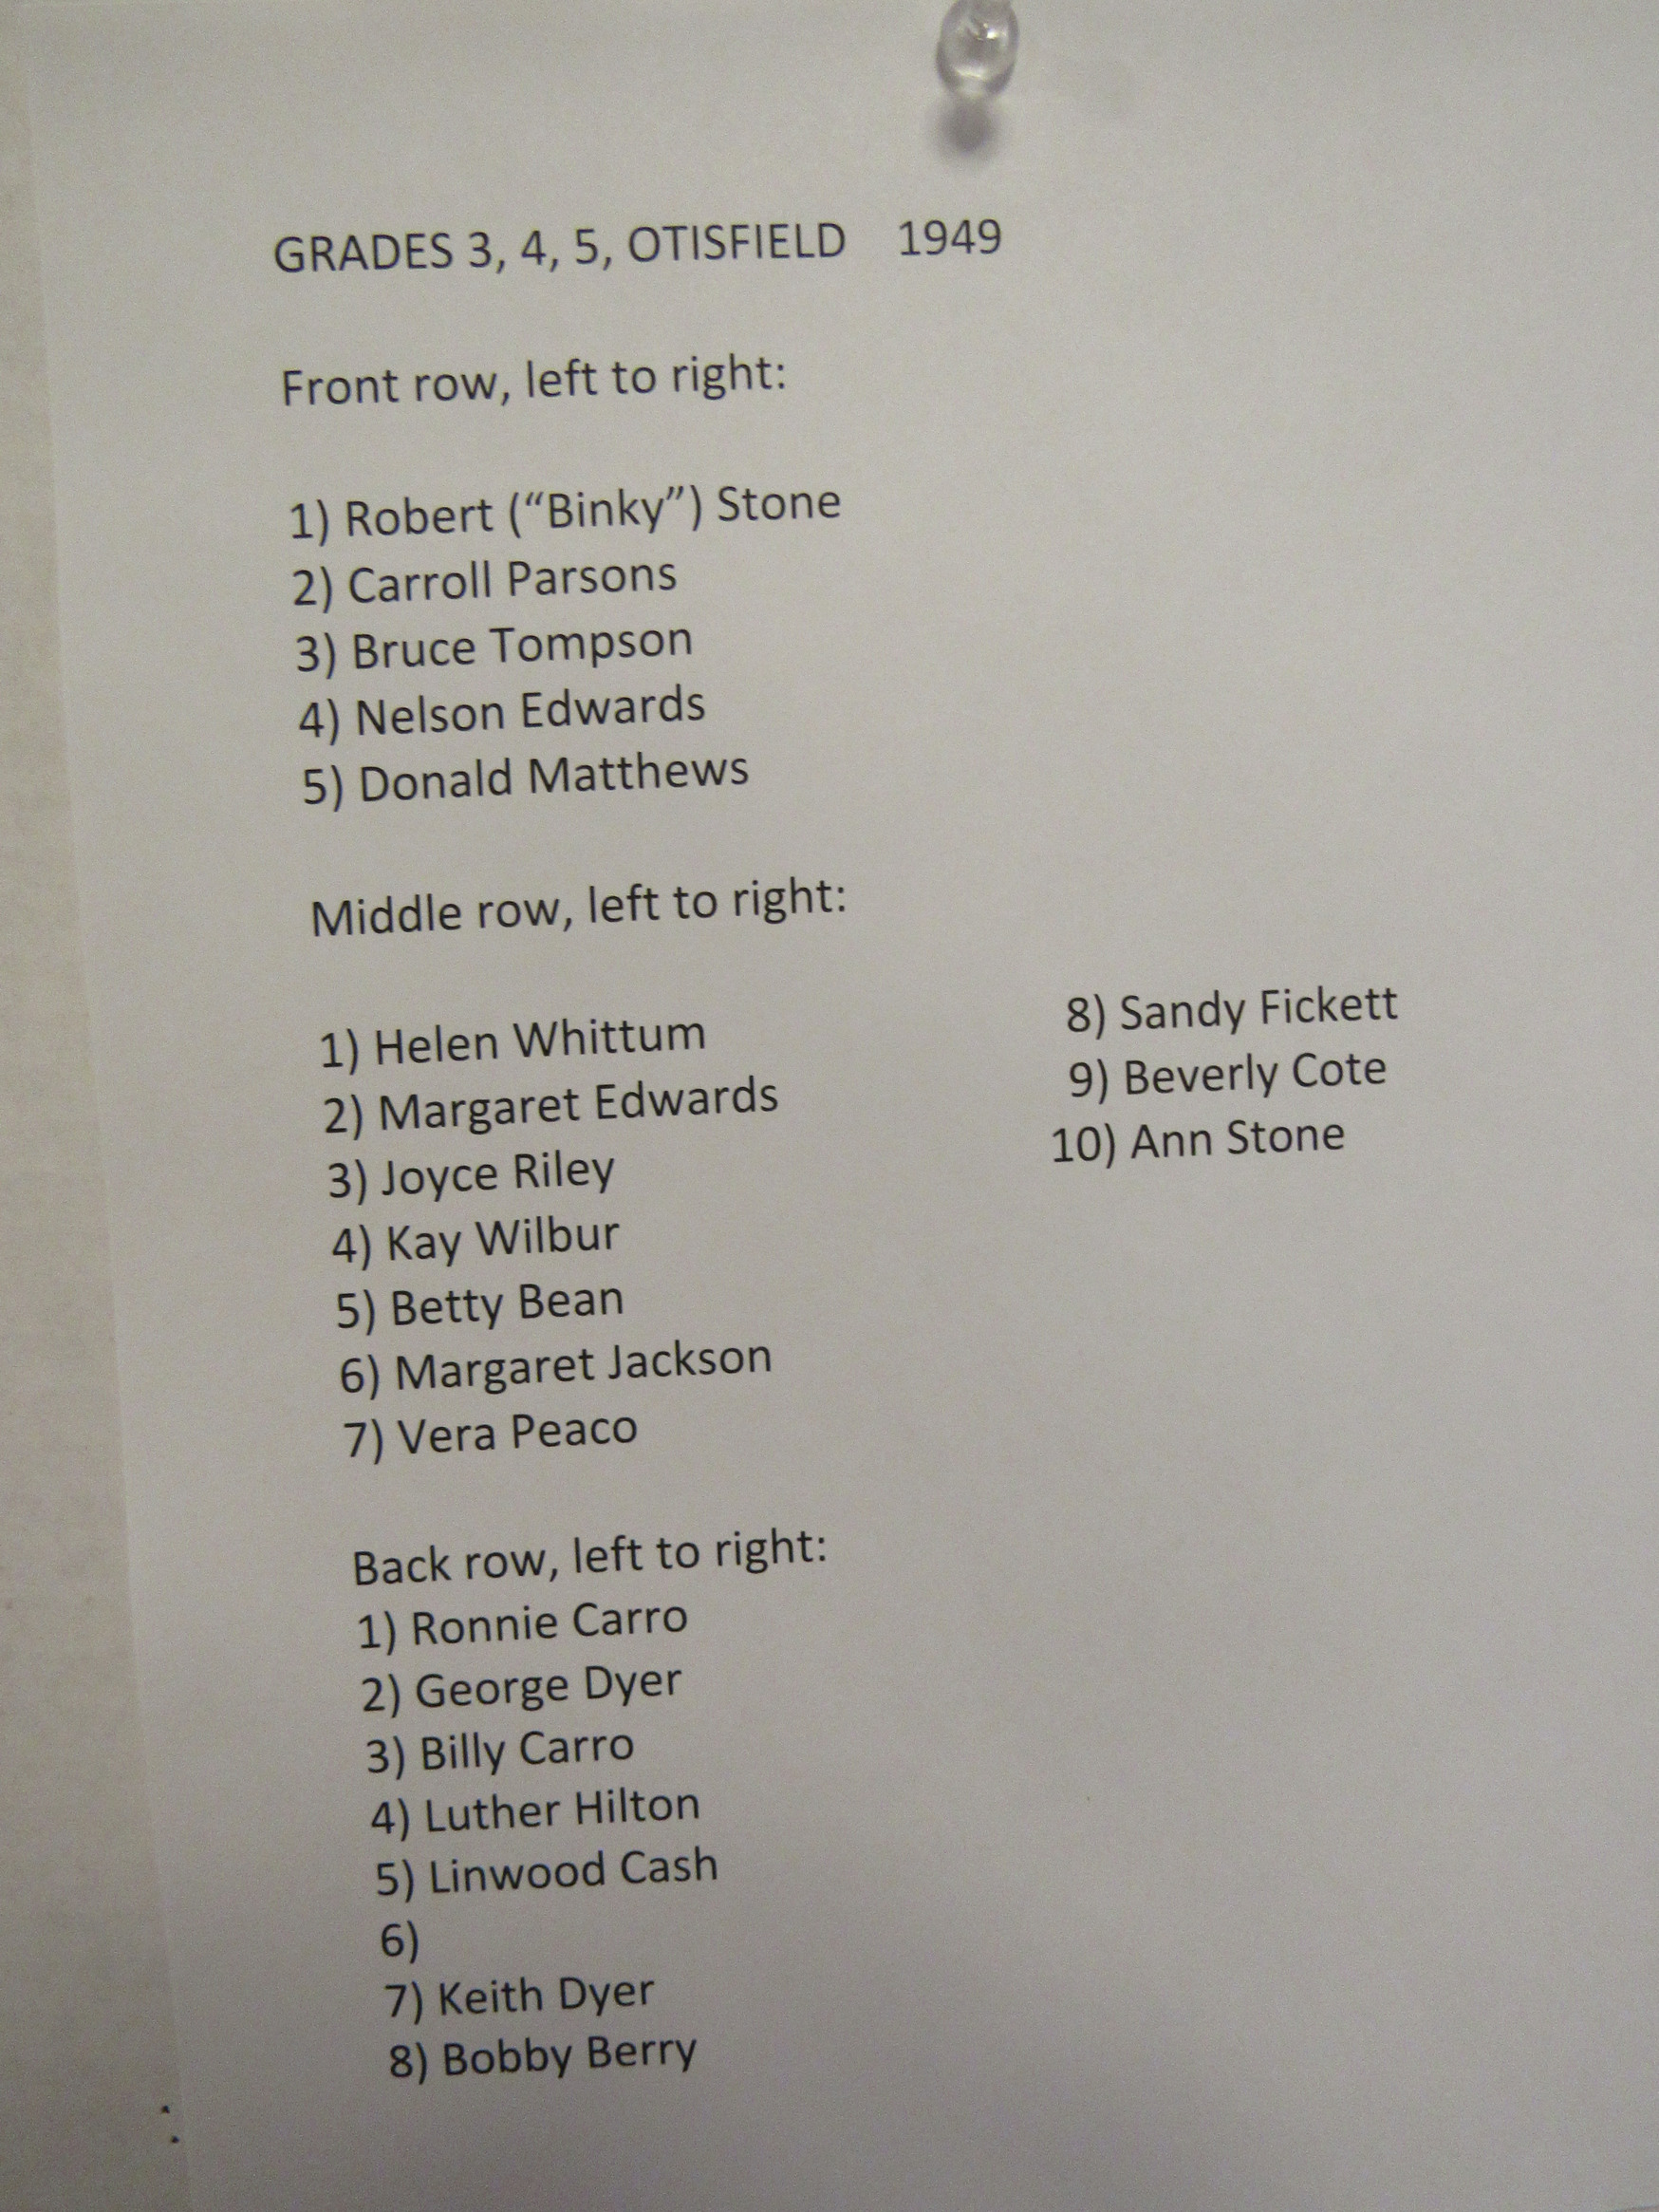 GRADES 3, 4, 5, OTISFIELD 1949
Front row, left to right:
1) Robert (“Binky”) Stone
2) Carroll Parsons
3) Bruce Tompson
4) Nelson Edwards
5) Donald Matthews
Middle row, left to right:
1) Helen Whittum
2) Margaret Edwards
3) Joyce Riley
4) Kay Wilbur
5) Betty Bean
6) Margaret Jackson
7) Vera Peaco
8) Sandy Fickett
9) Beverly Cote
10) Ann Stone
Back row, left to right:
1) Ronnie Carro
2) George Dyer
3) Billy Carro
4) Luther Hilton
5) Linwood Cash
6)
7) Keith Dyer
8) Bobby Berry